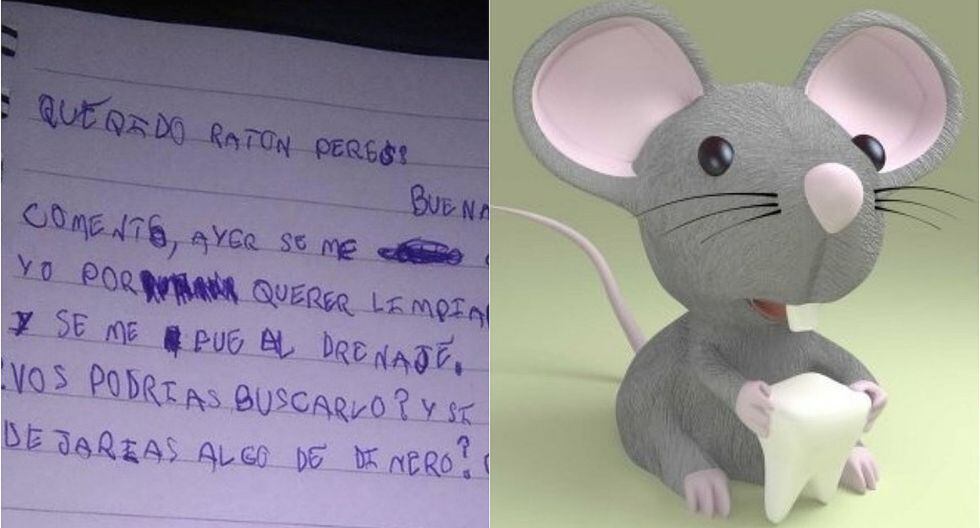 QUERIDO RATON PERES:
BUENA
COMENTO, AYER SE ME
YO POR QUERER LIMPIA
Y SE ME FUE AL DRENAJE.
VOS PODRIAS BUSCARLO? Y SI
DEJARIAS ALGO DE DINERO?